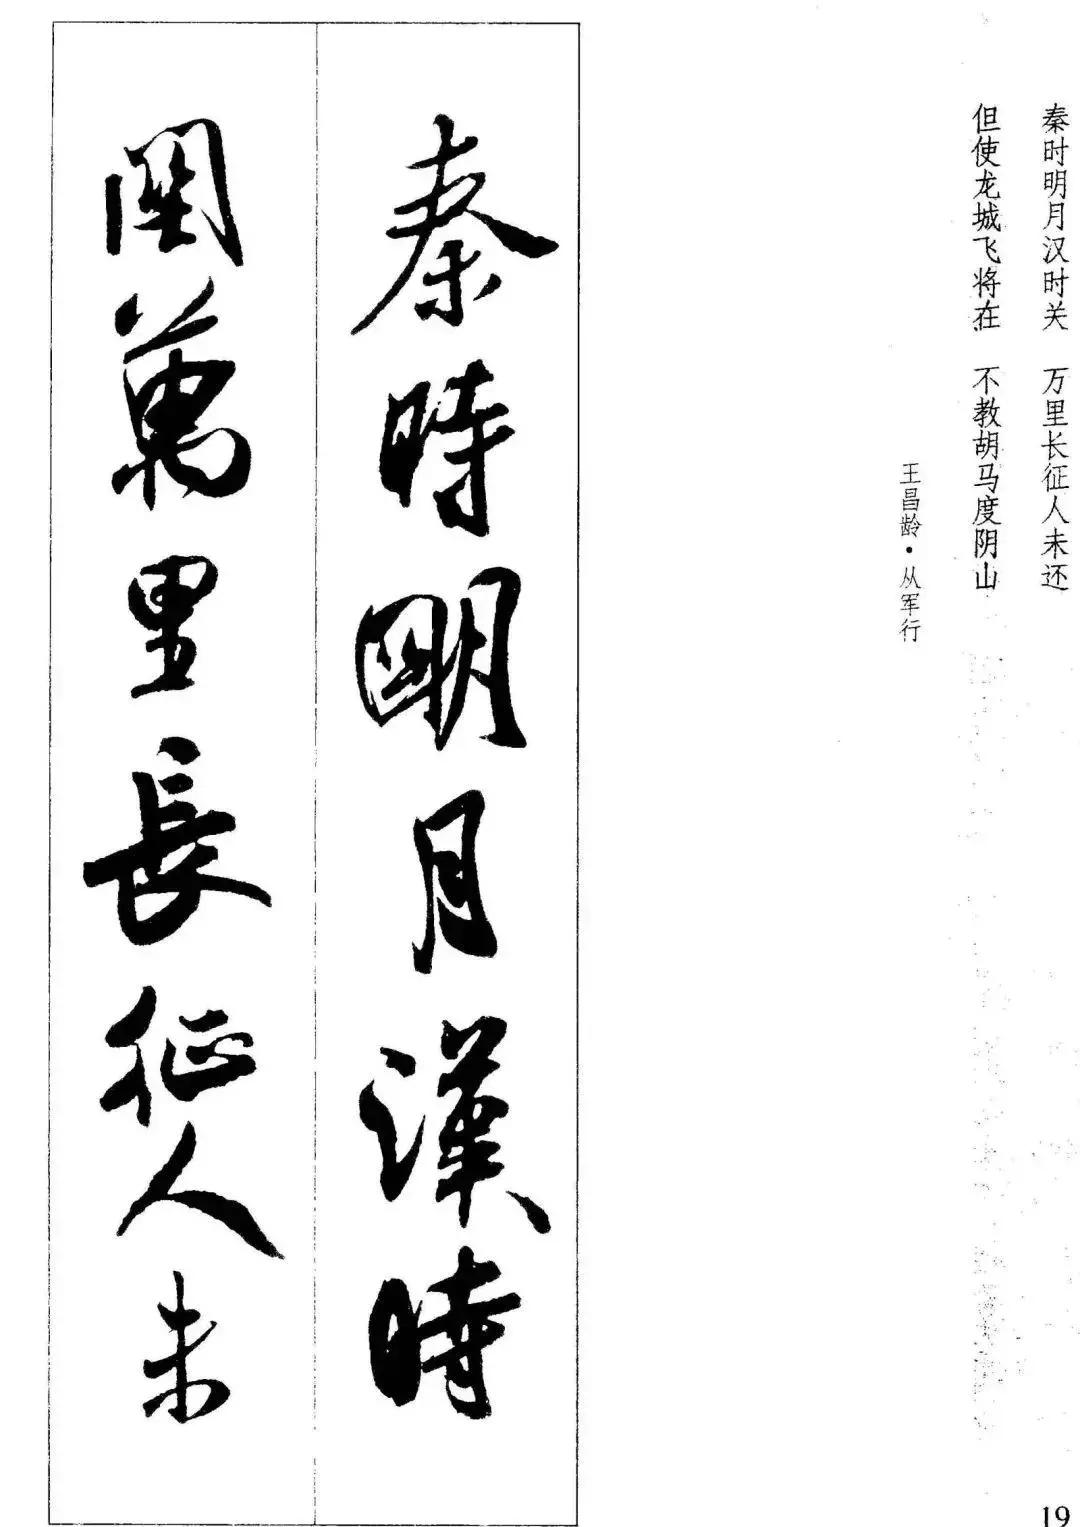 秦时明月汉时关 万里长征人未还
但使龙城飞将在 不教胡马度阴山
王昌龄·从军行
秦時明月漢時
関萬里長征人未
19